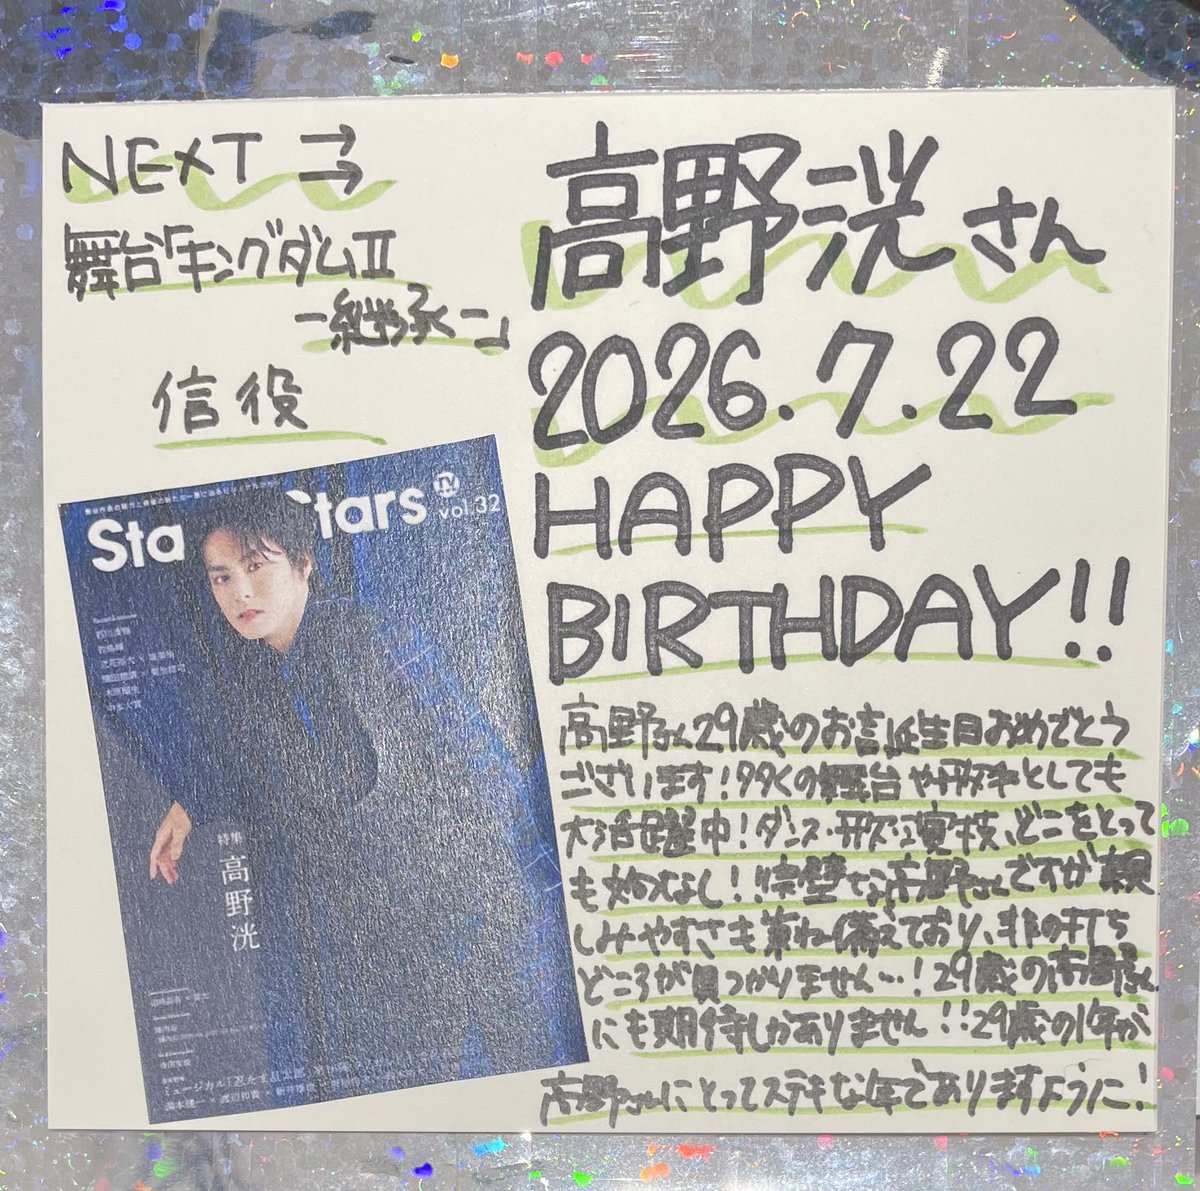 NEXT →
舞台「キングダムⅡ
-継承-」
信役
高野洸さん
2026.7.22
HAPPY
BIRTHDAY!!
高野さん29歳のお誕生日おめでとう
ございます!多くの舞台や歌手としても
大活躍中!ダンス・歌・演技、どこをとって
も始めなし!!完璧な高野さんですが親
しみやすさも兼ね備えており、非の打ち
どころが見つかりません…!29歳の高野さん
にも期待しかありません!!29歳の1年が
高野さんにとってステキな年でありますように!
Sta tars
vol.32
特集
高野洸
ミュージカル「忍たま乱太郎